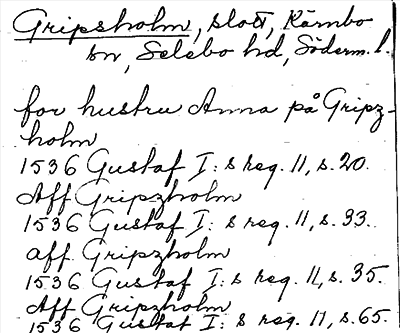 Gripsholm, slott, Kärnbo
sn, Selebo hd, Söderm. l.
for hustru Anna på Gripz-
holm
1536 Gustaf I: s reg. 11, s. 20.
Aff Gripzholm
1536 Gustaf I: s reg. 11, s. 33.
aff Gripzholm
1536 Gustaf I: s reg. 11, s. 35.
Aff Gripzholm
1536 Gustaf I: s reg. 11, s. 65.